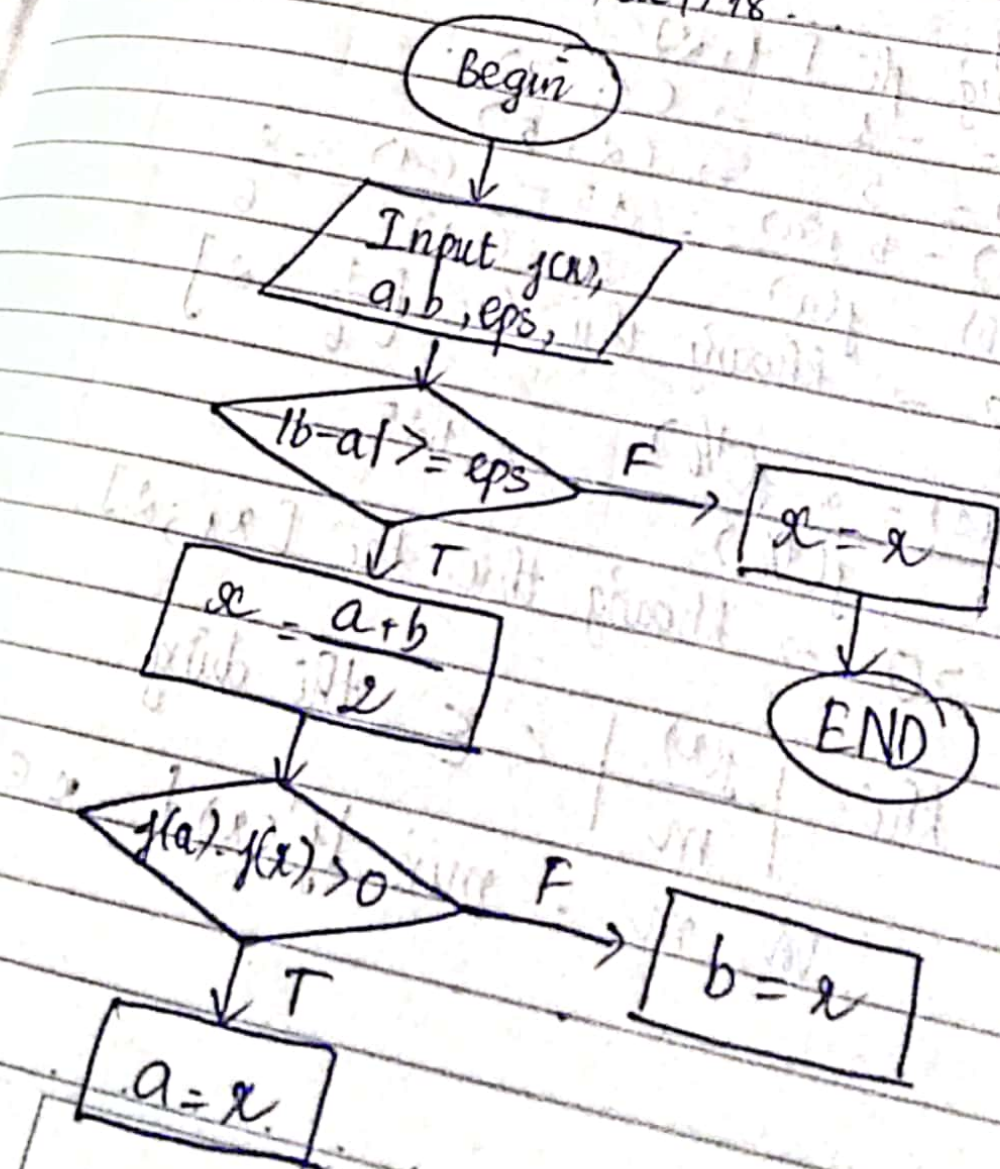 Begin
Input f(x),
a, b, eps,
|b-a| >= eps
F
x = x
T
x = a+b
2
END
f(a).f(x) > 0
F
b = x
T
a = x